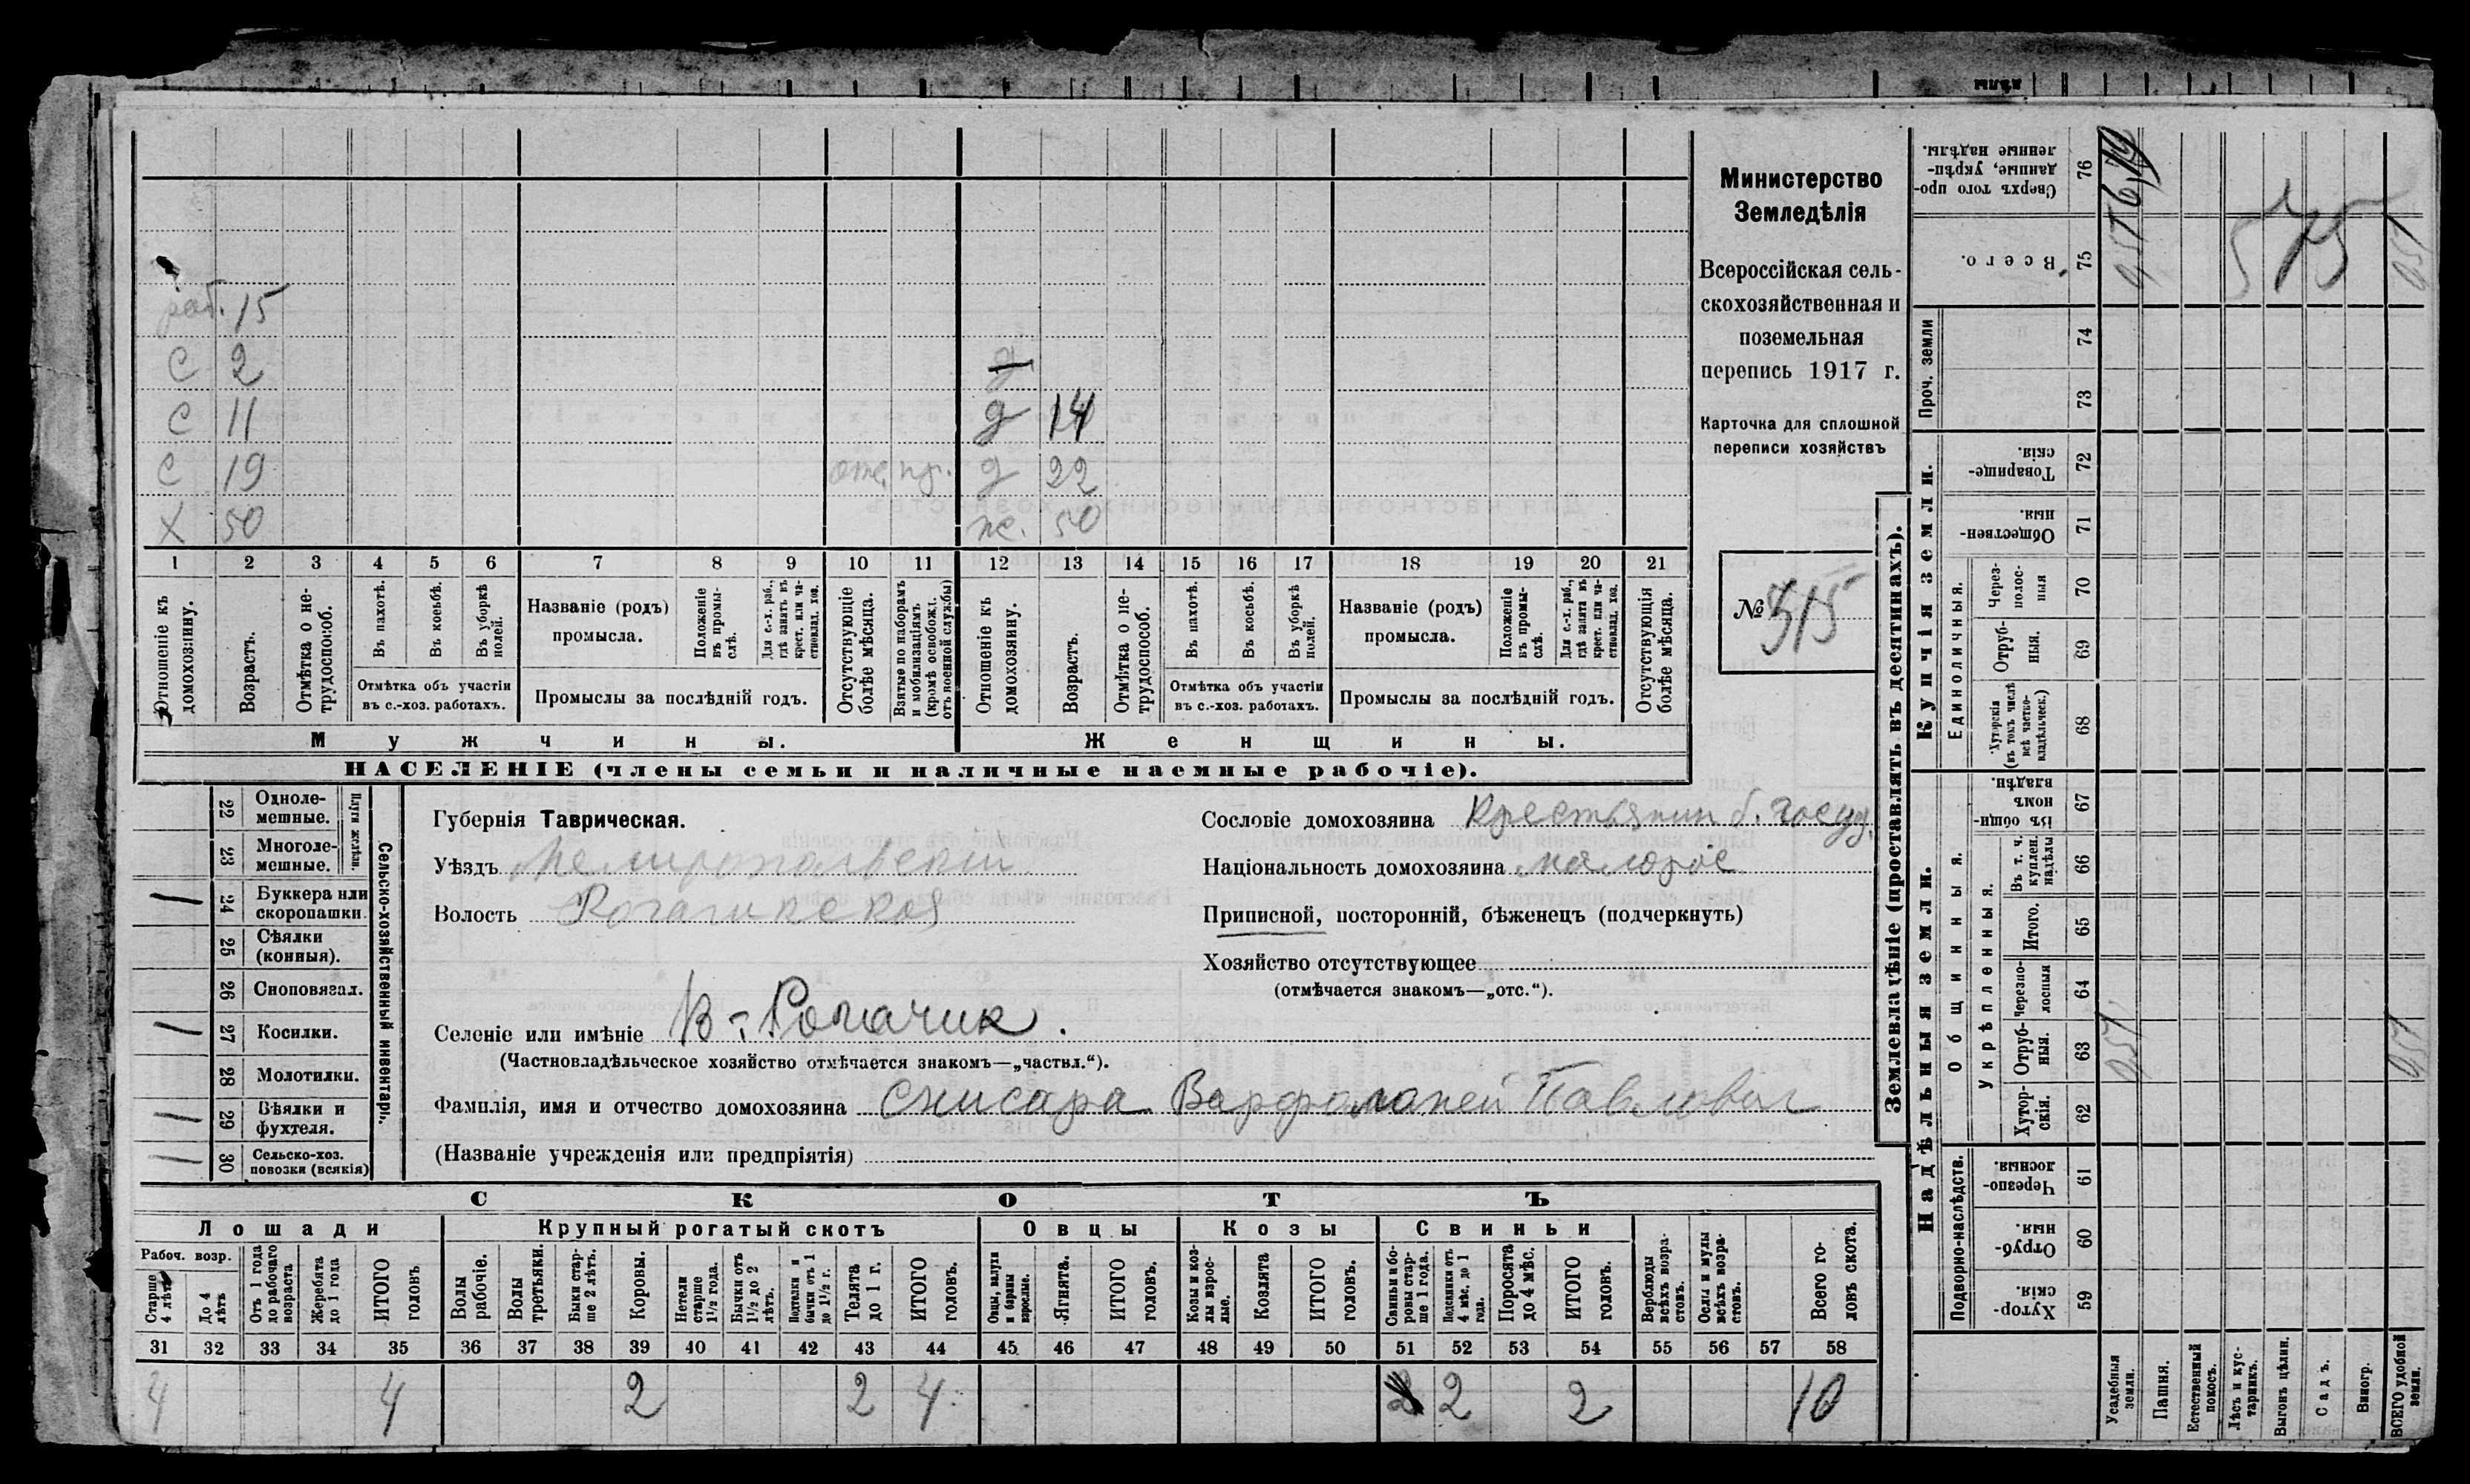 раб. 15
С 2 д
С 11 д 14
С 19 отс. д 22
Х 50 ж. 50
1 2 3 4 5 6 7 8 9 10 11 12 13 14 15 16 17 18 19 20 21
Отношеніе къ домохозяину.
Возрастъ.
Отмѣтка о нетрудоспособ.
Въ пахотѣ.
Въ косьбѣ.
Въ уборкѣ полей.
Отмѣтка объ участіи
въ с.-хоз. работахъ.
Названіе (родъ)
промысла.
Положеніе въ промыслѣ.
Для с.-х. раб., гдѣ занятъ въ крест. или частновлад. хоз.
Промыслы за послѣдній годъ.
Отсутствующіе болѣе мѣсяца.
Взятые по наборамъ и мобилизаціямъ (кромѣ освобожд. отъ военной службы)
Отношеніе къ домохозяину.
Возрастъ.
Отмѣтка о нетрудоспособ.
Въ пахотѣ.
Въ косьбѣ.
Въ уборкѣ полей.
Отмѣтка объ участіи
въ с.-хоз. работахъ.
Названіе (родъ)
промысла.
Положеніе въ промыслѣ.
Для с.-х. раб., гдѣ занята въ крест. или частновлад. хоз.
Промыслы за послѣдній годъ.
Отсутствующія болѣе мѣсяца.
Мужчины. Женщины.
НАСЕЛЕНІЕ (члены семьи и наличные наемные рабочіе).
Министерство
Земледѣлія
Всероссійская сель-
скохозяйственная и
поземельная
перепись 1917 г.
Карточка для сплошной
переписи хозяйствъ
№ 315
Сельско-хозяйственный инвентарь.
Плуги желѣзн.
22 Одноле-
мешные.
23 Многоле-
мешные.
1 24 Буккера или
скоропашки.
25 Сѣялки
(конныя).
26 Сноповязал.
1 27 Косилки.
28 Молотилки.
1 29 Вѣялки и
фухтеля.
1 30 Сельско-хоз.
повозки (всякія)
Губернія Таврическая.
Уѣздъ Мелитопольскій
Волость Рогачикская
Сословіе домохозяина Крестьянин б. госуд.
Національность домохозяина малорос
Приписной, посторонній, бѣженецъ (подчеркнуть)
Хозяйство отсутствующее
(отмѣчается знакомъ—„отс.“).
Селеніе или имѣніе В-Рогачик.
(Частновладѣльческое хозяйство отмѣчается знакомъ—„частвл.“).
Фамилія, имя и отчество домохозяина Снисара Варфоломей Павлович
(Названіе учрежденія или предпріятія)
СКОТЪ
Лошади Крупный рогатый скотъ Овцы Козы Свиньи
Рабоч. возр.
Старше 4 лѣтъ
До 4 лѣтъ
Отъ 1 года до рабочаго возраста
Жеребята до 1 года
ИТОГО головъ
Волы рабочіе.
Волы третьяки.
Быки старше 2 лѣтъ.
Коровы.
Нетели старше 1½ года.
Бычки отъ 1½ до 2 лѣтъ.
Подтелки и бычки отъ 1 до 1½ г.
Телята до 1 г.
ИТОГО головъ.
Овцы, валухи и бараны взрослые.
Ягнята.
ИТОГО головъ.
Козы и козлы взрослые.
Козлята
ИТОГО головъ.
Свиньи и боровы старше 1 года.
Подсвинки отъ 4 мѣс. до 1 года.
Поросята до 4 мѣс.
ИТОГО головъ.
Верблюды всѣхъ возрастовъ.
Ослы и мулы всѣхъ возрастовъ.
Всего головъ скота.
31 32 33 34 35 36 37 38 39 40 41 42 43 44 45 46 47 48 49 50 51 52 53 54 55 56 57 58
4 4 2 2 4 2 2 2 10
Землевладѣніе (проставлять въ десятинахъ).
Купчія земли.
Надѣльныя земли.
Сверхъ того проданные, укрѣпленные надѣлы. 76
Всего. 75 957 575 957
Проч. земли 74 73
Товарищескія. 72
Общественныя. 71
Единоличныя.
Черезполосныя 70
Отрубныя. 69
Хуторскія (въ томъ числѣ всѣ частновладѣльческ.) 68
Общинныя.
Въ общинномъ владѣн. 67
Укрѣпленныя.
Въ т. ч. куплен. надѣлы 66
Итого. 65
Черезполосныя 64
Отрубныя. 63 957 957
Хуторскія. 62
Подворно-наслѣдств.
Черезполосныя. 61
Отрубныя. 60
Хуторскія. 59
Усадебныя земли.
Пашня.
Естественный покосъ.
Лѣсъ и кустарникъ.
Выгонъ цѣлин.
Садъ.
Виногр.
ВСЕГО удобной земли.